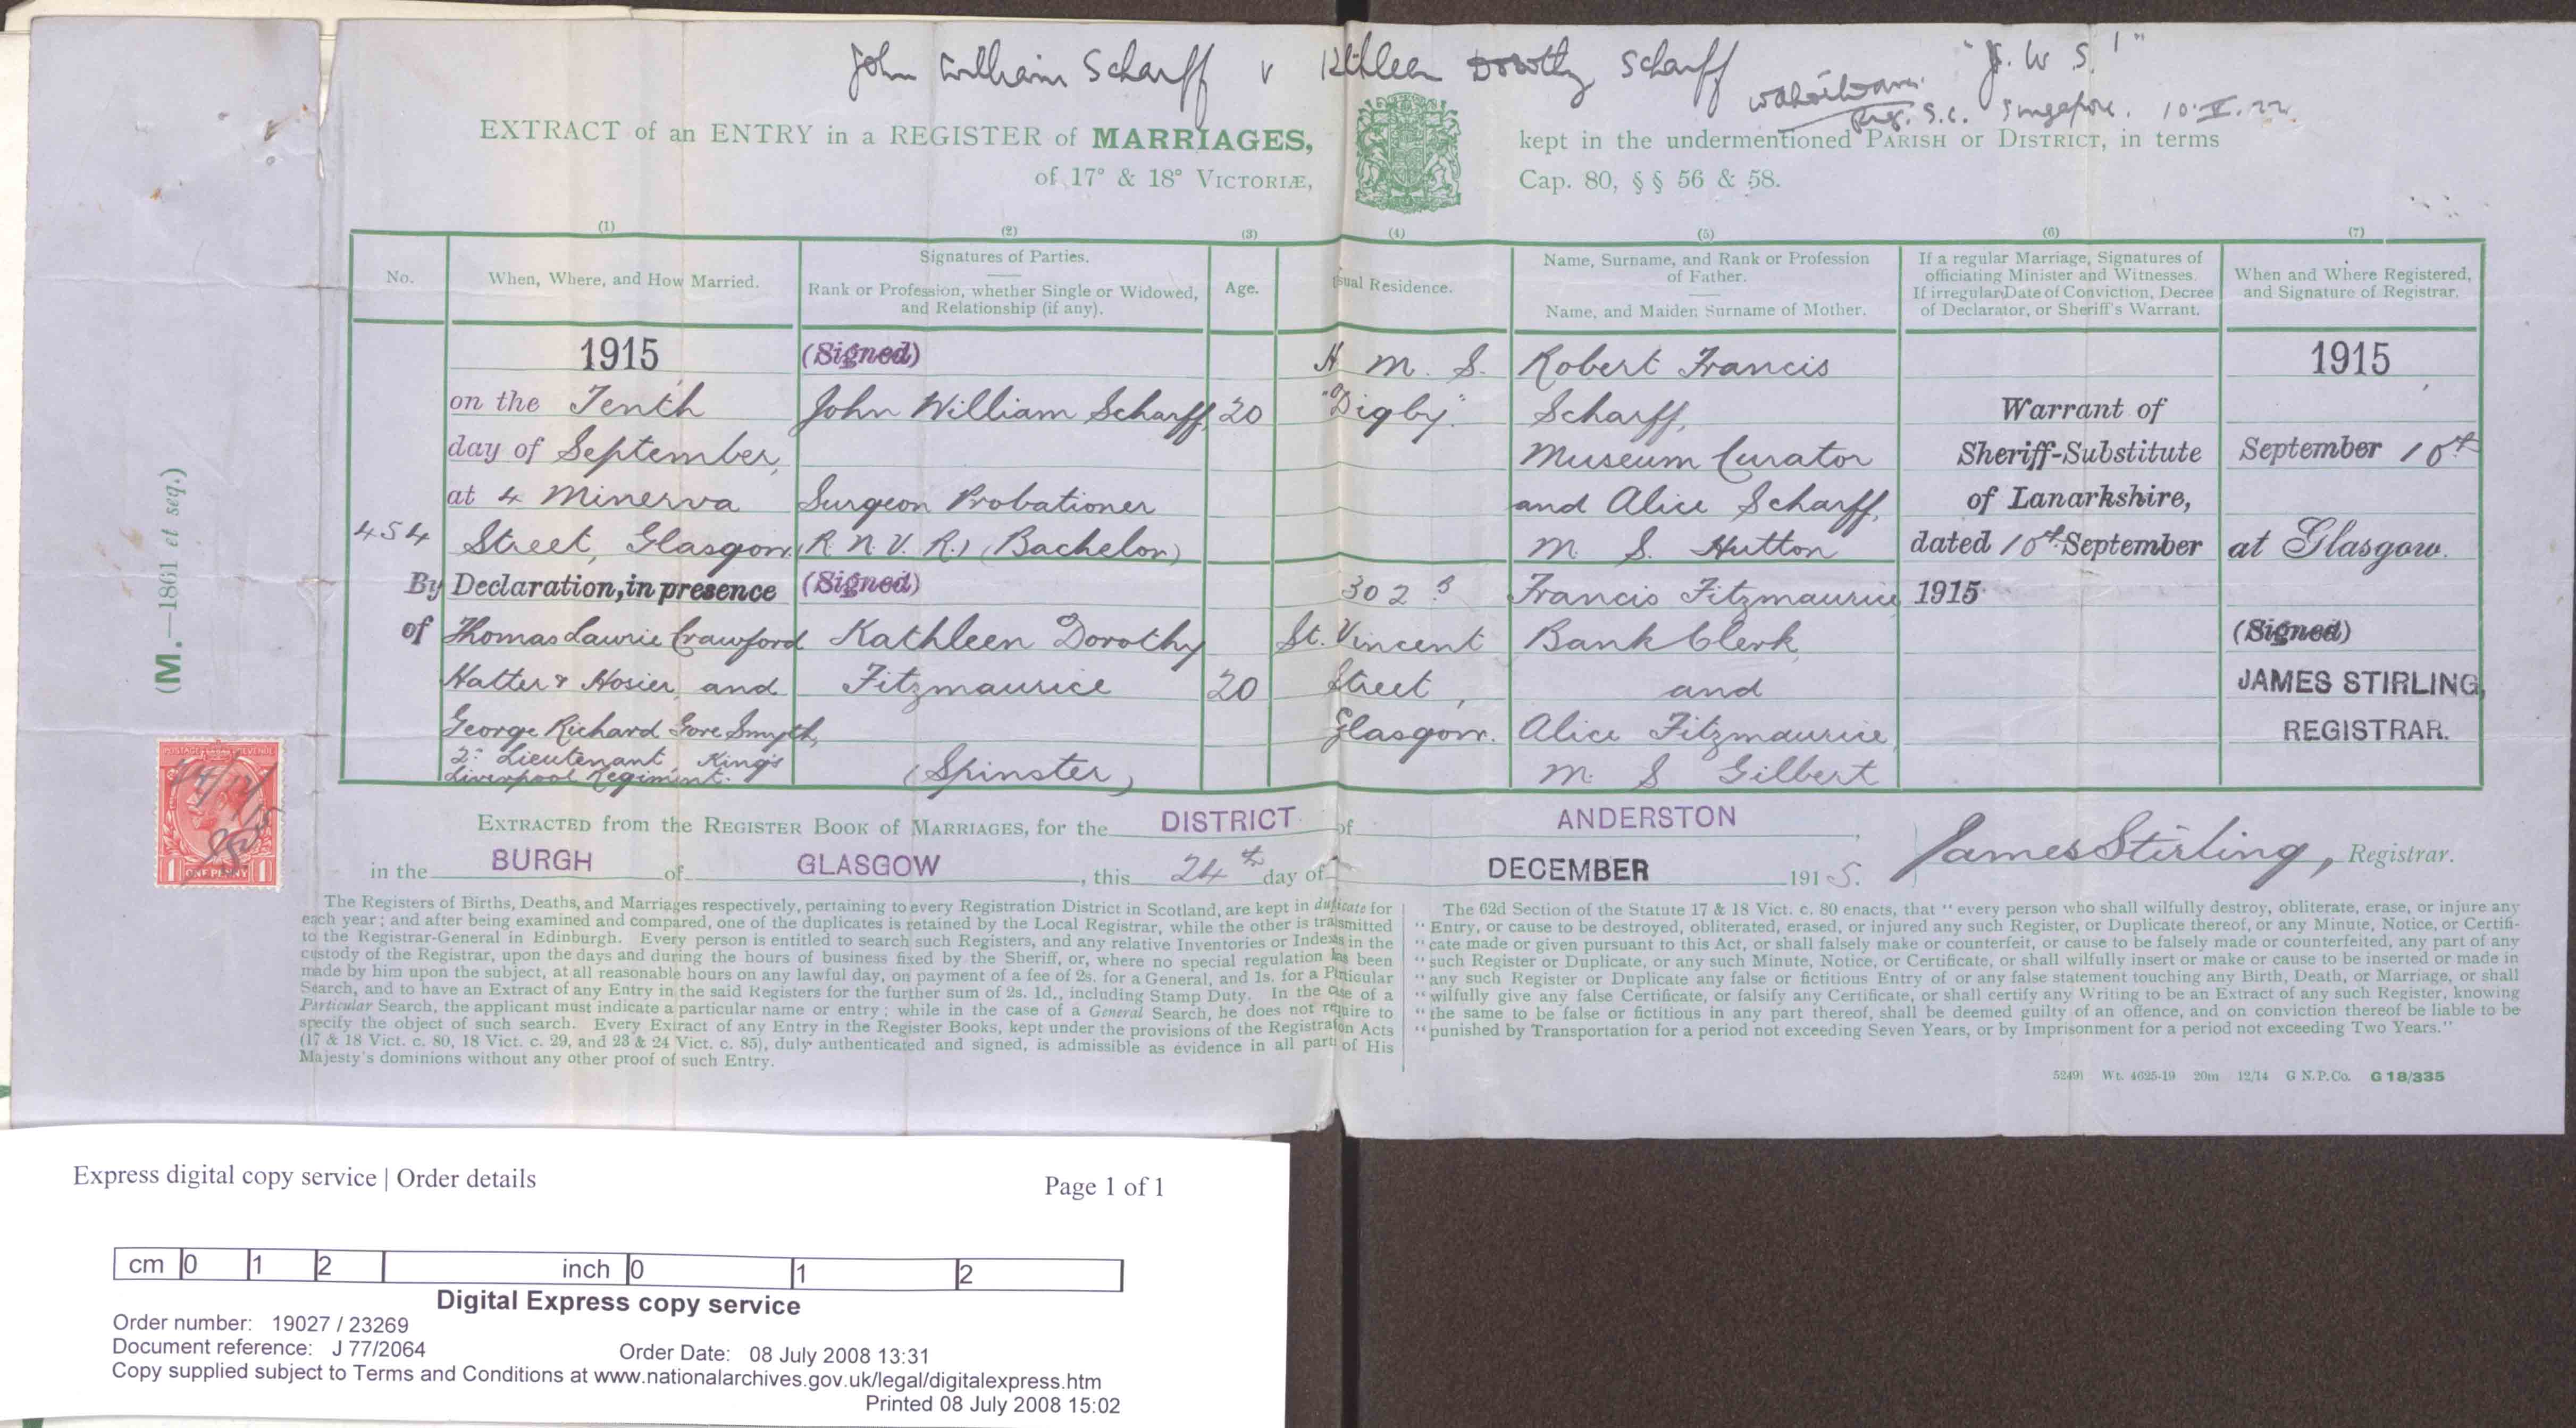 John William Scharff v Kthleen Dorothy Scharff
"J. W. S. 1"
Reg. S.C. Singapore. 10.V.22
EXTRACT of an ENTRY in a REGISTER of MARRIAGES, kept in the undermentioned PARISH or DISTRICT, in terms
of 17° & 18° VICTORIÆ, Cap. 80, § § 56 & 58.
(1) (2) (3) (4) (5) (6) (7)
No.
When, Where, and How Married.
Signatures of Parties.
Rank or Profession, whether Single or Widowed,
and Relationship (if any).
Age.
Usual Residence.
Name, Surname, and Rank or Profession
of Father.
Name, and Maiden Surname of Mother.
If a regular Marriage, Signatures of
officiating Minister and Witnesses.
If irregular, Date of Conviction, Decree
of Declarator, or Sheriff's Warrant.
When and Where Registered,
and Signature of Registrar.
454
1915
on the Tenth
day of September,
at 4 Minerva
Street, Glasgow.
By Declaration, in presence
of Thomas Laurie Crawford
Hatter & Hosier, and
George Richard Gore Smyth,
2: Lieutenant King's
Liverpool Regiment.
(Signed)
John William Scharff,
Surgeon Probationer
(R. N. V. R.) (Bachelor)
(Signed)
Kathleen Dorothy
Fitzmaurice
(Spinster)
20
20
H. M. S.
"Digby".
302
St. Vincent
Street,
Glasgow.
Robert Francis
Scharff,
Museum Curator
and Alice Scharff,
M. S. Hutton
Francis Fitzmaurice
Bank Clerk,
and
Alice Fitzmaurice,
M. S Gilbert
Warrant of
Sheriff-Substitute
of Lanarkshire,
dated 10th September
1915
1915
September 10th
at Glasgow.
(Signed)
JAMES STIRLING,
REGISTRAR.
(M.—1861 et seq.)
POSTAGE REVENUE
1 ONE PENNY 1
EXTRACTED from the REGISTER BOOK of MARRIAGES, for the DISTRICT of ANDERSTON,
in the BURGH of GLASGOW, this 24th day of DECEMBER 1915. James Stirling, Registrar.
The Registers of Births, Deaths, and Marriages respectively, pertaining to every Registration District in Scotland, are kept in duplicate for
each year; and after being examined and compared, one of the duplicates is retained by the Local Registrar, while the other is transmitted
to the Registrar-General in Edinburgh. Every person is entitled to search such Registers, and any relative Inventories or Indexes in the
custody of the Registrar, upon the days and during the hours of business fixed by the Sheriff, or, where no special regulation has been
made by him upon the subject, at all reasonable hours on any lawful day, on payment of a fee of 2s. for a General, and 1s. for a Particular
Search, and to have an Extract of any Entry in the said Registers for the further sum of 2s. 1d., including Stamp Duty. In the case of a
Particular Search, the applicant must indicate a particular name or entry; while in the case of a General Search, he does not require to
specify the object of such search. Every Extract of any Entry in the Register Books, kept under the provisions of the Registration Acts
(17 & 18 Vict. c. 80, 18 Vict. c. 29, and 23 & 24 Vict. c. 85), duly authenticated and signed, is admissible as evidence in all parts of His
Majesty's dominions without any other proof of such Entry.
The 62d Section of the Statute 17 & 18 Vict. c. 80 enacts, that "every person who shall wilfully destroy, obliterate, erase, or injure any
"Entry, or cause to be destroyed, obliterated, erased, or injured any such Register, or Duplicate thereof, or any Minute, Notice, or Certifi-
"cate made or given pursuant to this Act, or shall falsely make or counterfeit, or cause to be falsely made or counterfeited, any part of any
"such Register or Duplicate, or any such Minute, Notice, or Certificate, or shall wilfully insert or make or cause to be inserted or made in
"any such Register or Duplicate any false or fictitious Entry of or any false statement touching any Birth, Death, or Marriage, or shall
"wilfully give any false Certificate, or falsify any Certificate, or shall certify any Writing to be an Extract of any such Register, knowing
"the same to be false or fictitious in any part thereof, shall be deemed guilty of an offence, and on conviction thereof be liable to be
"punished by Transportation for a period not exceeding Seven Years, or by Imprisonment for a period not exceeding Two Years."
52491 Wt. 4625-19 20m 12/14 G N.P.Co. G 18/335
Express digital copy service | Order details Page 1 of 1
cm 0 1 2 inch 0 1 2
Digital Express copy service
Order number: 19027 / 23269
Document reference: J 77/2064 Order Date: 08 July 2008 13:31
Copy supplied subject to Terms and Conditions at www.nationalarchives.gov.uk/legal/digitalexpress.htm
Printed 08 July 2008 15:02